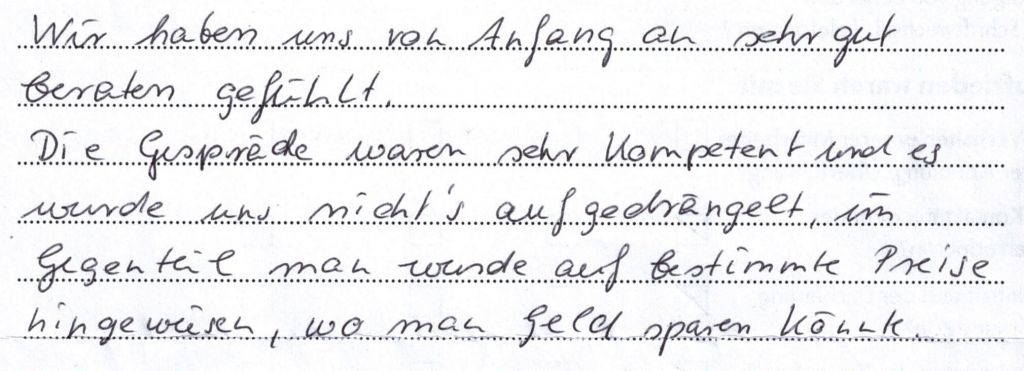 Wir haben uns von Anfang an sehr gut
beraten gefühlt.
Die Gespräde waren sehr Kompetent und es
wurde uns nicht's aufgedrängelt, im
Gegenteil man wurde auf bestimmte Preise
hingewiesen, wo man Geld sparen könnte.